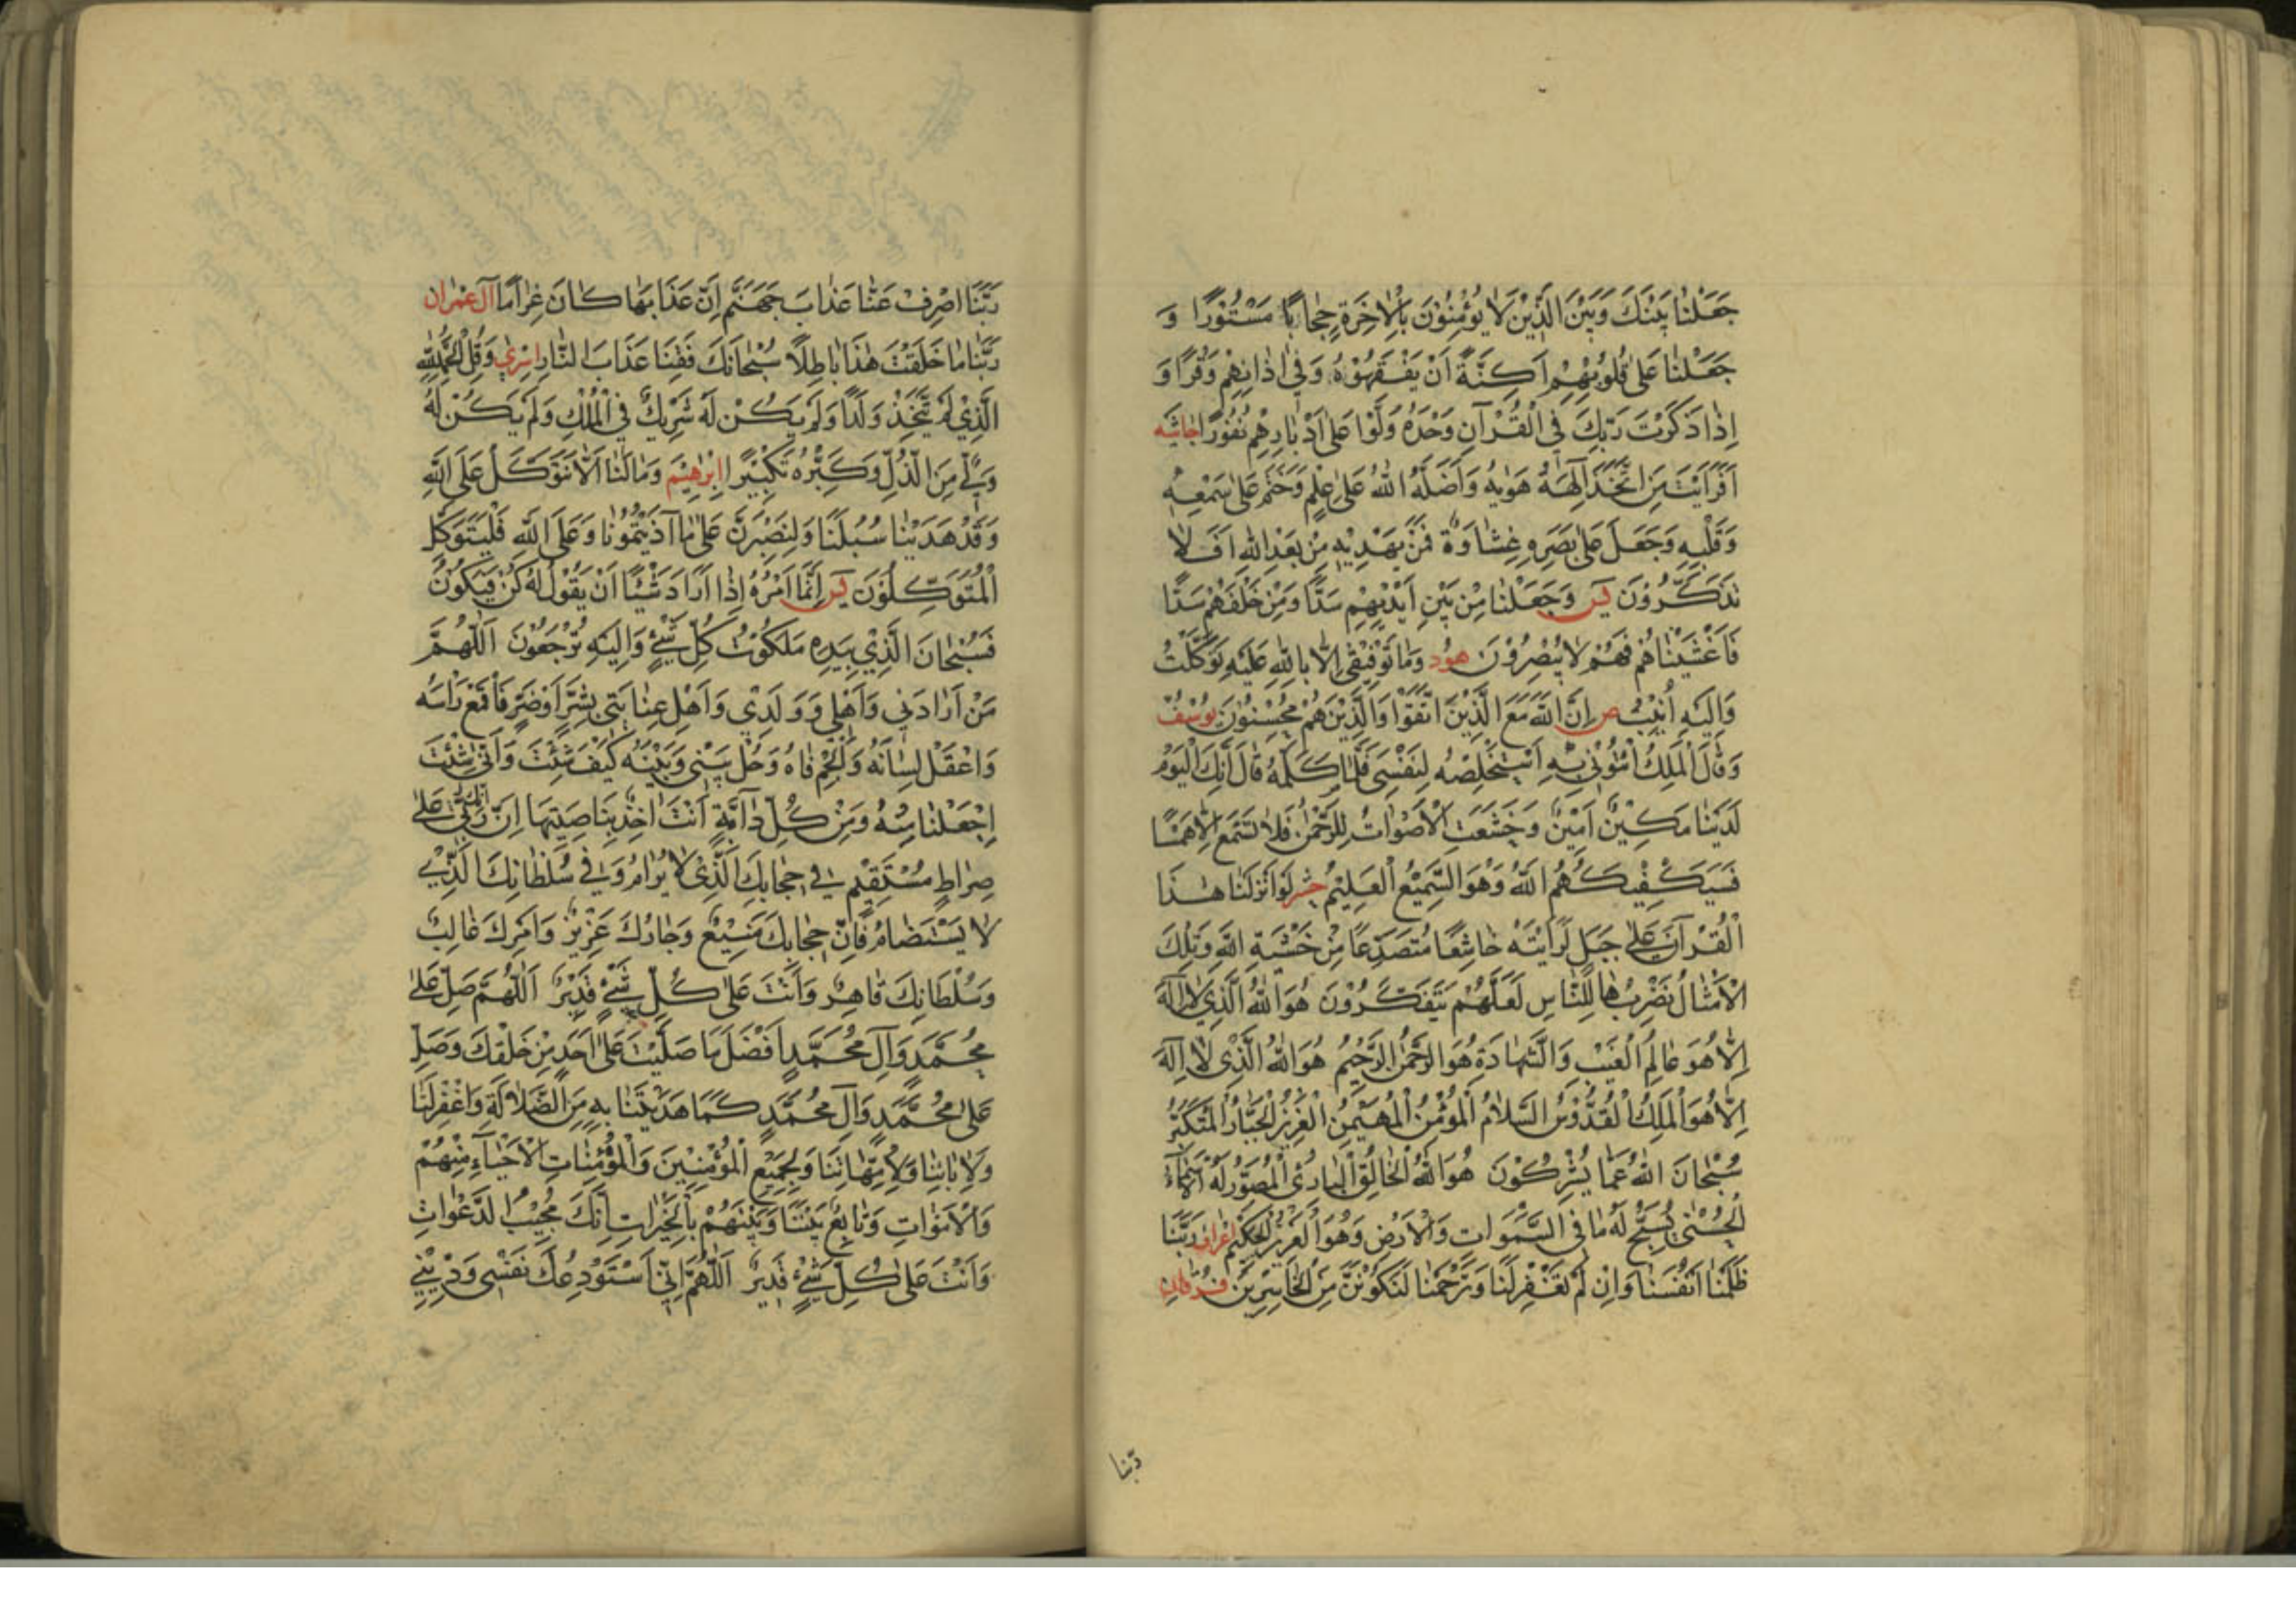 جَعَلْنٰا بَيْنَكَ وَبَيْنَ الَّذِيْنَ لَا يُؤْمِنُوْنَ بِالْاٰخِرَةِ حِجٰابًا مَسْتُوْرًا وَ
جَعَلْنٰا عَلىٰ قُلُوْبِهِمْ اَكِنَّةً اَنْ يَفْقَهُوْهُ وَفِيْ اٰذٰانِهِمْ وَقْرًا وَ
اِذٰا ذَكَرْتَ رَبَّكَ فِي الْقُرْآنِ وَحْدَهُ وَلَّوْا عَلىٰ اَدْبٰارِهِمْ نُفُوْرًا جاثيه
اَفَرَاَيْتَ مَنِ اتَّخَذَ اِلٰهَهُ هَوٰيهُ وَاَضَلَّهُ اللّٰهُ عَلىٰ عِلْمٍ وَخَتَمَ عَلىٰ سَمْعِهِ
وَقَلْبِهِ وَجَعَلَ عَلىٰ بَصَرِهِ غِشٰاوَةً فَمَنْ يَهْدِيْهِ مِنْ بَعْدِ اللّٰهِ اَفَلٰا
تَذَكَّرُوْنَ يس وَجَعَلْنٰا مِنْ بَيْنِ اَيْدِيْهِمْ سَدًّا وَمِنْ خَلْفِهِمْ سَدًّا
فَاَغْشَيْنٰاهُمْ فَهُمْ لٰا يُبْصِرُوْنَ هود وَمٰا تَوْفِيْقِي اِلّٰا بِاللّٰهِ عَلَيْهِ تَوَكَّلْتُ
وَاِلَيْهِ اُنِيْبُ ص اِنَّ اللّٰهَ مَعَ الَّذِيْنَ اتَّقَوْا وَالَّذِيْنَ هُمْ مُحْسِنُوْنَ يوسف
وَقٰالَ الْمَلِكُ ائْتُوْنِي بِهِ اَسْتَخْلِصْهُ لِنَفْسِي فَلَمّٰا كَلَّمَهُ قٰالَ اِنَّكَ الْيَوْمَ
لَدَيْنٰا مَكِيْنٌ اَمِيْنٌ وَخَشَعَتِ الْاَصْوٰاتُ لِلرَّحْمٰنِ فَلٰا تَسْمَعُ اِلّٰا هَمْسًا
فَسَيَكْفِيْكَهُمُ اللّٰهُ وَهُوَ السَّمِيْعُ الْعَلِيْمُ حشر لَوْ اَنْزَلْنٰا هٰذَا
الْقُرْآنَ عَلىٰ جَبَلٍ لَرَاَيْتَهُ خٰاشِعًا مُتَصَدِّعًا مِنْ خَشْيَةِ اللّٰهِ وَتِلْكَ
الْاَمْثٰالُ نَضْرِبُهٰا لِلنّٰاسِ لَعَلَّهُمْ يَتَفَكَّرُوْنَ هُوَ اللّٰهُ الَّذِيْ لٰا اِلٰهَ
اِلّٰا هُوَ عٰالِمُ الْغَيْبِ وَالشَّهٰادَةِ هُوَ الرَّحْمٰنُ الرَّحِيْمُ هُوَ اللّٰهُ الَّذِيْ لٰا اِلٰهَ
اِلّٰا هُوَ الْمَلِكُ الْقُدُّوْسُ السَّلٰامُ الْمُؤْمِنُ الْمُهَيْمِنُ الْعَزِيْزُ الْجَبّٰارُ الْمُتَكَبِّرُ
سُبْحٰانَ اللّٰهِ عَمّٰا يُشْرِكُوْنَ هُوَ اللّٰهُ الْخٰالِقُ الْبٰارِئُ الْمُصَوِّرُ لَهُ الْاَسْمٰآءُ
الْحُسْنىٰ يُسَبِّحُ لَهُ مٰا فِي السَّمٰوَاتِ وَالْاَرْضِ وَهُوَ الْعَزِيْزُ الْحَكِيْمُ اعراف رَبَّنٰا
ظَلَمْنٰا اَنْفُسَنٰا وَاِنْ لَمْ تَغْفِرْ لَنٰا وَتَرْحَمْنٰا لَنَكُوْنَنَّ مِنَ الْخٰاسِرِيْنَ فرقان
ربنا
رَبَّنَا اصْرِفْ عَنّٰا عَذٰابَ جَهَنَّمَ اِنَّ عَذَابَهٰا كٰانَ غَرٰامًا آل عمران
رَبَّنٰا مٰا خَلَقْتَ هٰذَا بٰاطِلًا سُبْحٰانَكَ فَقِنٰا عَذَابَ النّٰارِ اسرى وَقُلِ الْحَمْدُ لِلّٰهِ
الَّذِيْ لَمْ يَتَّخِذْ وَلَدًا وَلَمْ يَكُنْ لَهُ شَرِيْكٌ فِي الْمُلْكِ وَلَمْ يَكُنْ لَهُ
وَلِيٌّ مِنَ الذُّلِّ وَكَبِّرْهُ تَكْبِيْرًا ابرهيم وَمٰا لَنٰا اَلّٰا نَتَوَكَّلَ عَلَى اللّٰهِ
وَقَدْ هَدَيْنٰا سُبُلَنٰا وَلَنَصْبِرَنَّ عَلىٰ مٰا آذَيْتُمُوْنٰا وَعَلَى اللّٰهِ فَلْيَتَوَكَّلِ
الْمُتَوَكِّلُوْنَ يس اِنَّمٰا اَمْرُهُ اِذٰا اَرٰادَ شَيْئًا اَنْ يَقُوْلَ لَهُ كُنْ فَيَكُوْنُ
فَسُبْحٰانَ الَّذِيْ بِيَدِهِ مَلَكُوْتُ كُلِّ شَيْءٍ وَاِلَيْهِ تُرْجَعُوْنَ اَللّٰهُمَّ
مَنْ اَرٰادَنِي وَاَهْلِي وَوَلَدِيْ وَاَهْلَ عِنٰايَتِي بِشَرٍّ اَوْ ضَرٍّ فَاقْمَعْ رَاْسَهُ
وَاعْقِلْ لِسٰانَهُ وَالْجِمْ فٰاهُ وَحُلْ بَيْنِي وَبَيْنَهُ كَيْفَ شِئْتَ وَاَنّىٰ شِئْتَ
اِجْعَلْنٰا مِنْهُ وَمِنْ كُلِّ دٰآبَّةٍ اَنْتَ اٰخِذٌ بِنٰاصِيَتِهٰا اِنَّ رَبِّي عَلىٰ
صِرٰاطٍ مُسْتَقِيْمٍ فِي حِجٰابِكَ الَّذِيْ لٰا يُرٰامُ وَفِي سُلْطٰانِكَ الَّذِيْ
لٰا يُسْتَضٰامُ فَاِنَّ حِجٰابَكَ مَنِيْعٌ وَجٰارُكَ عَزِيْزٌ وَاَمْرُكَ غٰالِبٌ
وَسُلْطٰانُكَ قٰاهِرٌ وَاَنْتَ عَلىٰ كُلِّ شَيْءٍ قَدِيْرٌ اَللّٰهُمَّ صَلِّ عَلىٰ
مُحَمَّدٍ وَآلِ مُحَمَّدٍ اَفْضَلَ مٰا صَلَّيْتَ عَلىٰ اَحَدٍ مِنْ خَلْقِكَ وَصَلِّ
عَلىٰ مُحَمَّدٍ وَآلِ مُحَمَّدٍ كَمٰا هَدَيْتَنٰا بِهِ مِنَ الضَّلٰالَةِ وَاغْفِرْ لَنٰا
وَلِاٰبٰائِنٰا وَلِاُمَّهٰاتِنٰا وَلِجَمِيْعِ الْمُؤْمِنِيْنَ وَالْمُؤْمِنٰاتِ الْاَحْيٰآءِ مِنْهُمْ
وَالْاَمْوٰاتِ وَتٰابِعْ بَيْنَنٰا وَبَيْنَهُمْ بِالْخَيْرٰاتِ اِنَّكَ مُجِيْبُ الدَّعَوٰاتِ
وَاَنْتَ عَلىٰ كُلِّ شَيْءٍ قَدِيْرٌ اَللّٰهُمَّ اِنِّي اَسْتَوْدِعُكَ نَفْسِي وَدِيْنِي